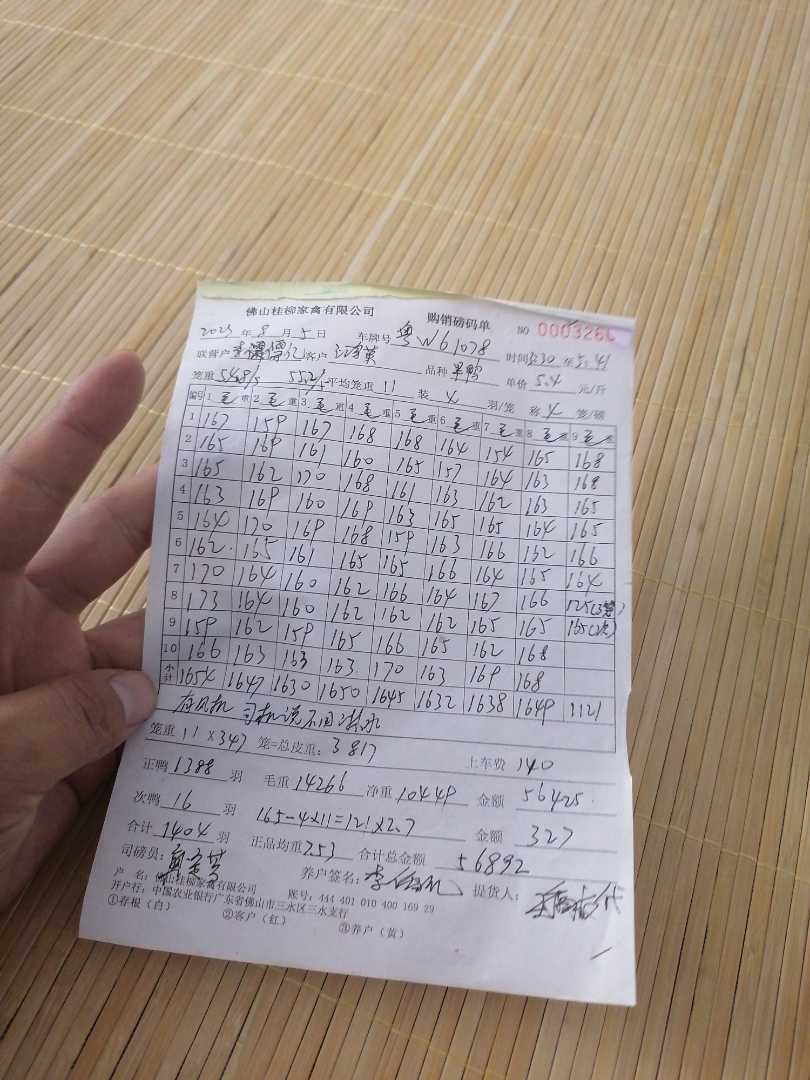 佛山桂柳家禽有限公司 购销磅码单 NO 0003266
2023 年 8 月 5 日 车牌号 粤W61078 时间 5:30 至 5:41
联营户 客户 江海英 品种 单鸭 单价 5.4 元/斤
笼重 54.8/5 55.2/5 平均笼重 11 装 4 羽/笼 称 4 笼/磅
编号 1 毛 重 2 毛 重 3 毛 重 4 毛 重 5 毛 重 6 毛 重 7 毛 重 8 毛 重 9 毛 重
1 167 159 167 168 168 164 154 165 168
2 165 169 161 160 165 157 164 163 168
3 165 162 170 168 161 163 162 163 165
4 163 169 160 169 163 165 165 164 165
5 164 170 169 168 159 163 166 162 166
6 162 165 161 165 165 166 164 165 164
7 170 164 160 162 166 164 167 166 125(3笼)
8 173 164 160 162 162 162 165 165 165(次)
9 159 162 159 165 166 165 162 168
10 166 163 163 163 170 163 169 168
小计 1654 1647 1630 1650 1645 1632 1638 1649 1121
有风机 司机说不用冲水
笼重 11 x 347 笼=总皮重: 3817 上车费 140
正鸭 1388 羽 毛重 14266 净重 10449 金额 56425
次鸭 16 羽 165-4x11=121x2.7 金额 327
合计 1404 羽 正品均重 7.53 合计总金额 56892
司磅员: 养户签名: 提货人:
户 名: 佛山桂柳家禽有限公司 账号: 444 401 010 400 169 29
开户行: 中国农业银行广东省佛山市三水区三水支行
①存根(白) ②客户(红) ③养户(黄)